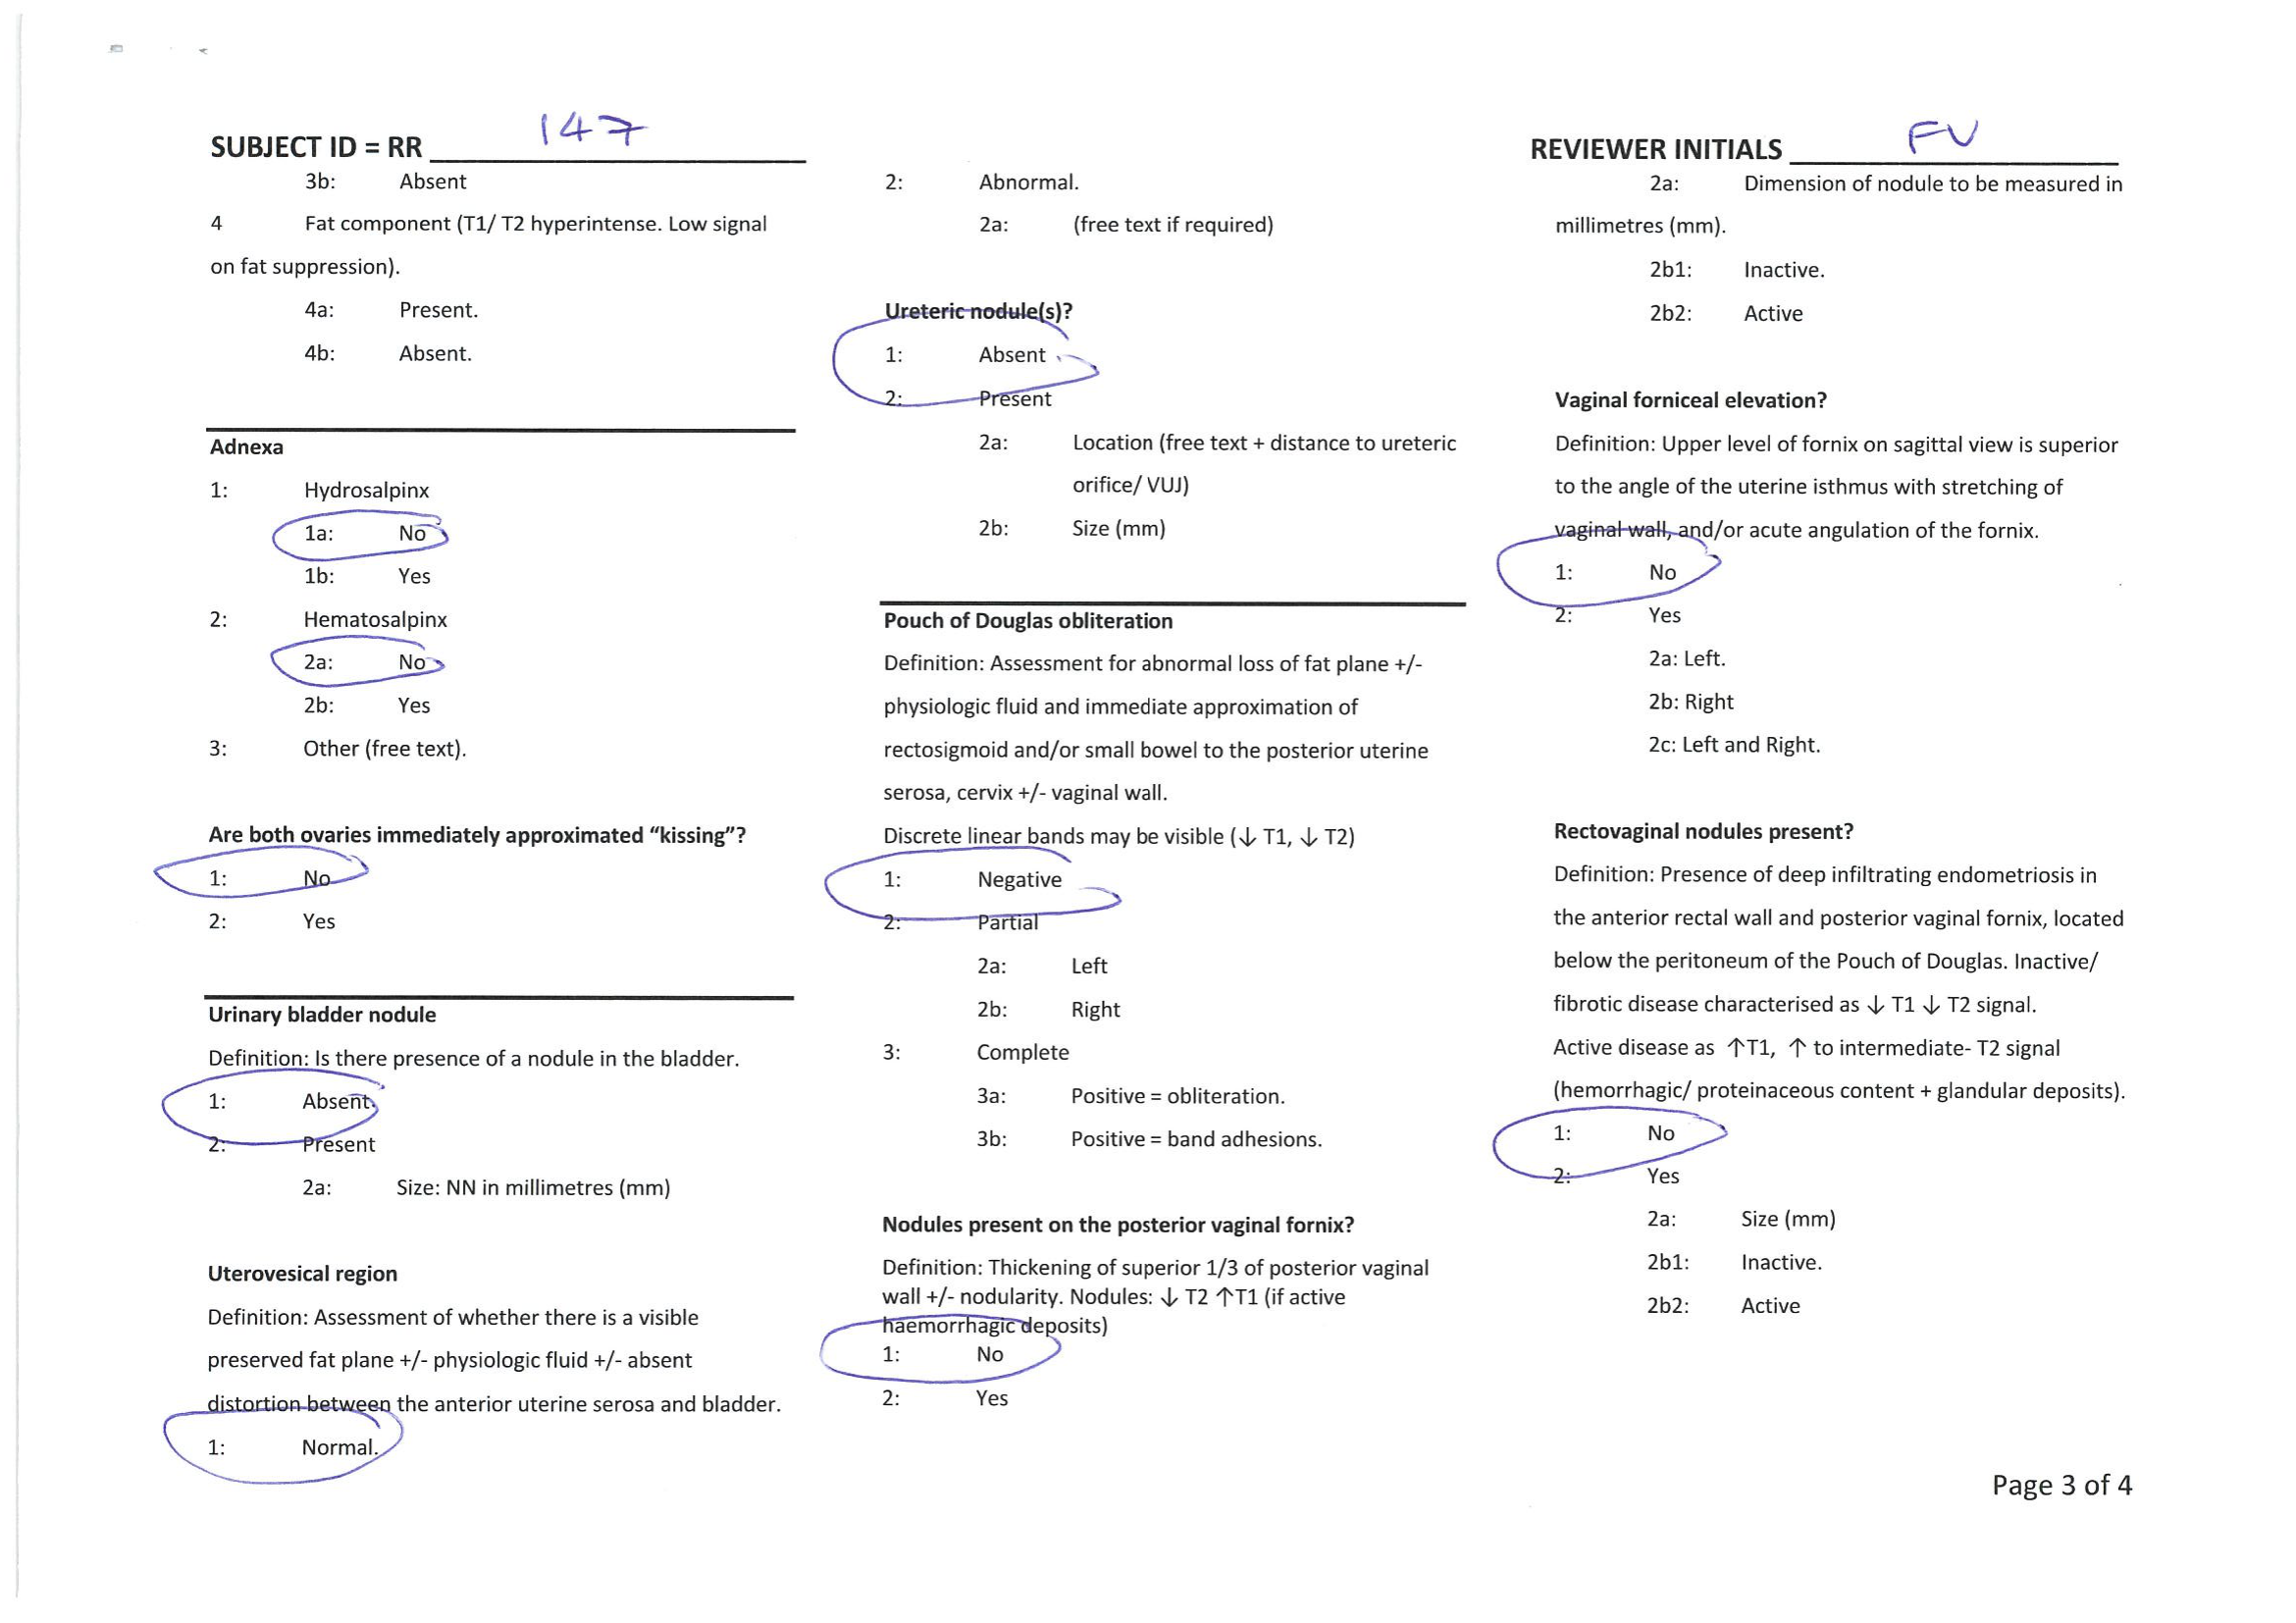 SUBJECT ID = RR 147
3b: Absent
4 Fat component (T1/ T2 hyperintense. Low signal
on fat suppression).
4a: Present.
4b: Absent.
Adnexa
1: Hydrosalpinx
1a: No
1b: Yes
2: Hematosalpinx
2a: No
2b: Yes
3: Other (free text).
Are both ovaries immediately approximated “kissing”?
1: No
2: Yes
Urinary bladder nodule
Definition: Is there presence of a nodule in the bladder.
1: Absent.
2: Present
2a: Size: NN in millimetres (mm)
Uterovesical region
Definition: Assessment of whether there is a visible
preserved fat plane +/- physiologic fluid +/- absent
distortion between the anterior uterine serosa and bladder.
1: Normal.
2: Abnormal.
2a: (free text if required)
Ureteric nodule(s)?
1: Absent
2: Present
2a: Location (free text + distance to ureteric
orifice/ VUJ)
2b: Size (mm)
Pouch of Douglas obliteration
Definition: Assessment for abnormal loss of fat plane +/-
physiologic fluid and immediate approximation of
rectosigmoid and/or small bowel to the posterior uterine
serosa, cervix +/- vaginal wall.
Discrete linear bands may be visible (↓ T1, ↓ T2)
1: Negative
2: Partial
2a: Left
2b: Right
3: Complete
3a: Positive = obliteration.
3b: Positive = band adhesions.
Nodules present on the posterior vaginal fornix?
Definition: Thickening of superior 1/3 of posterior vaginal
wall +/- nodularity. Nodules: ↓ T2 ↑T1 (if active
haemorrhagic deposits)
1: No
2: Yes
REVIEWER INITIALS FV
2a: Dimension of nodule to be measured in
millimetres (mm).
2b1: Inactive.
2b2: Active
Vaginal forniceal elevation?
Definition: Upper level of fornix on sagittal view is superior
to the angle of the uterine isthmus with stretching of
vaginal wall, and/or acute angulation of the fornix.
1: No
2: Yes
2a: Left.
2b: Right
2c: Left and Right.
Rectovaginal nodules present?
Definition: Presence of deep infiltrating endometriosis in
the anterior rectal wall and posterior vaginal fornix, located
below the peritoneum of the Pouch of Douglas. Inactive/
fibrotic disease characterised as ↓ T1 ↓ T2 signal.
Active disease as ↑T1, ↑ to intermediate- T2 signal
(hemorrhagic/ proteinaceous content + glandular deposits).
1: No
2: Yes
2a: Size (mm)
2b1: Inactive.
2b2: Active
Page 3 of 4